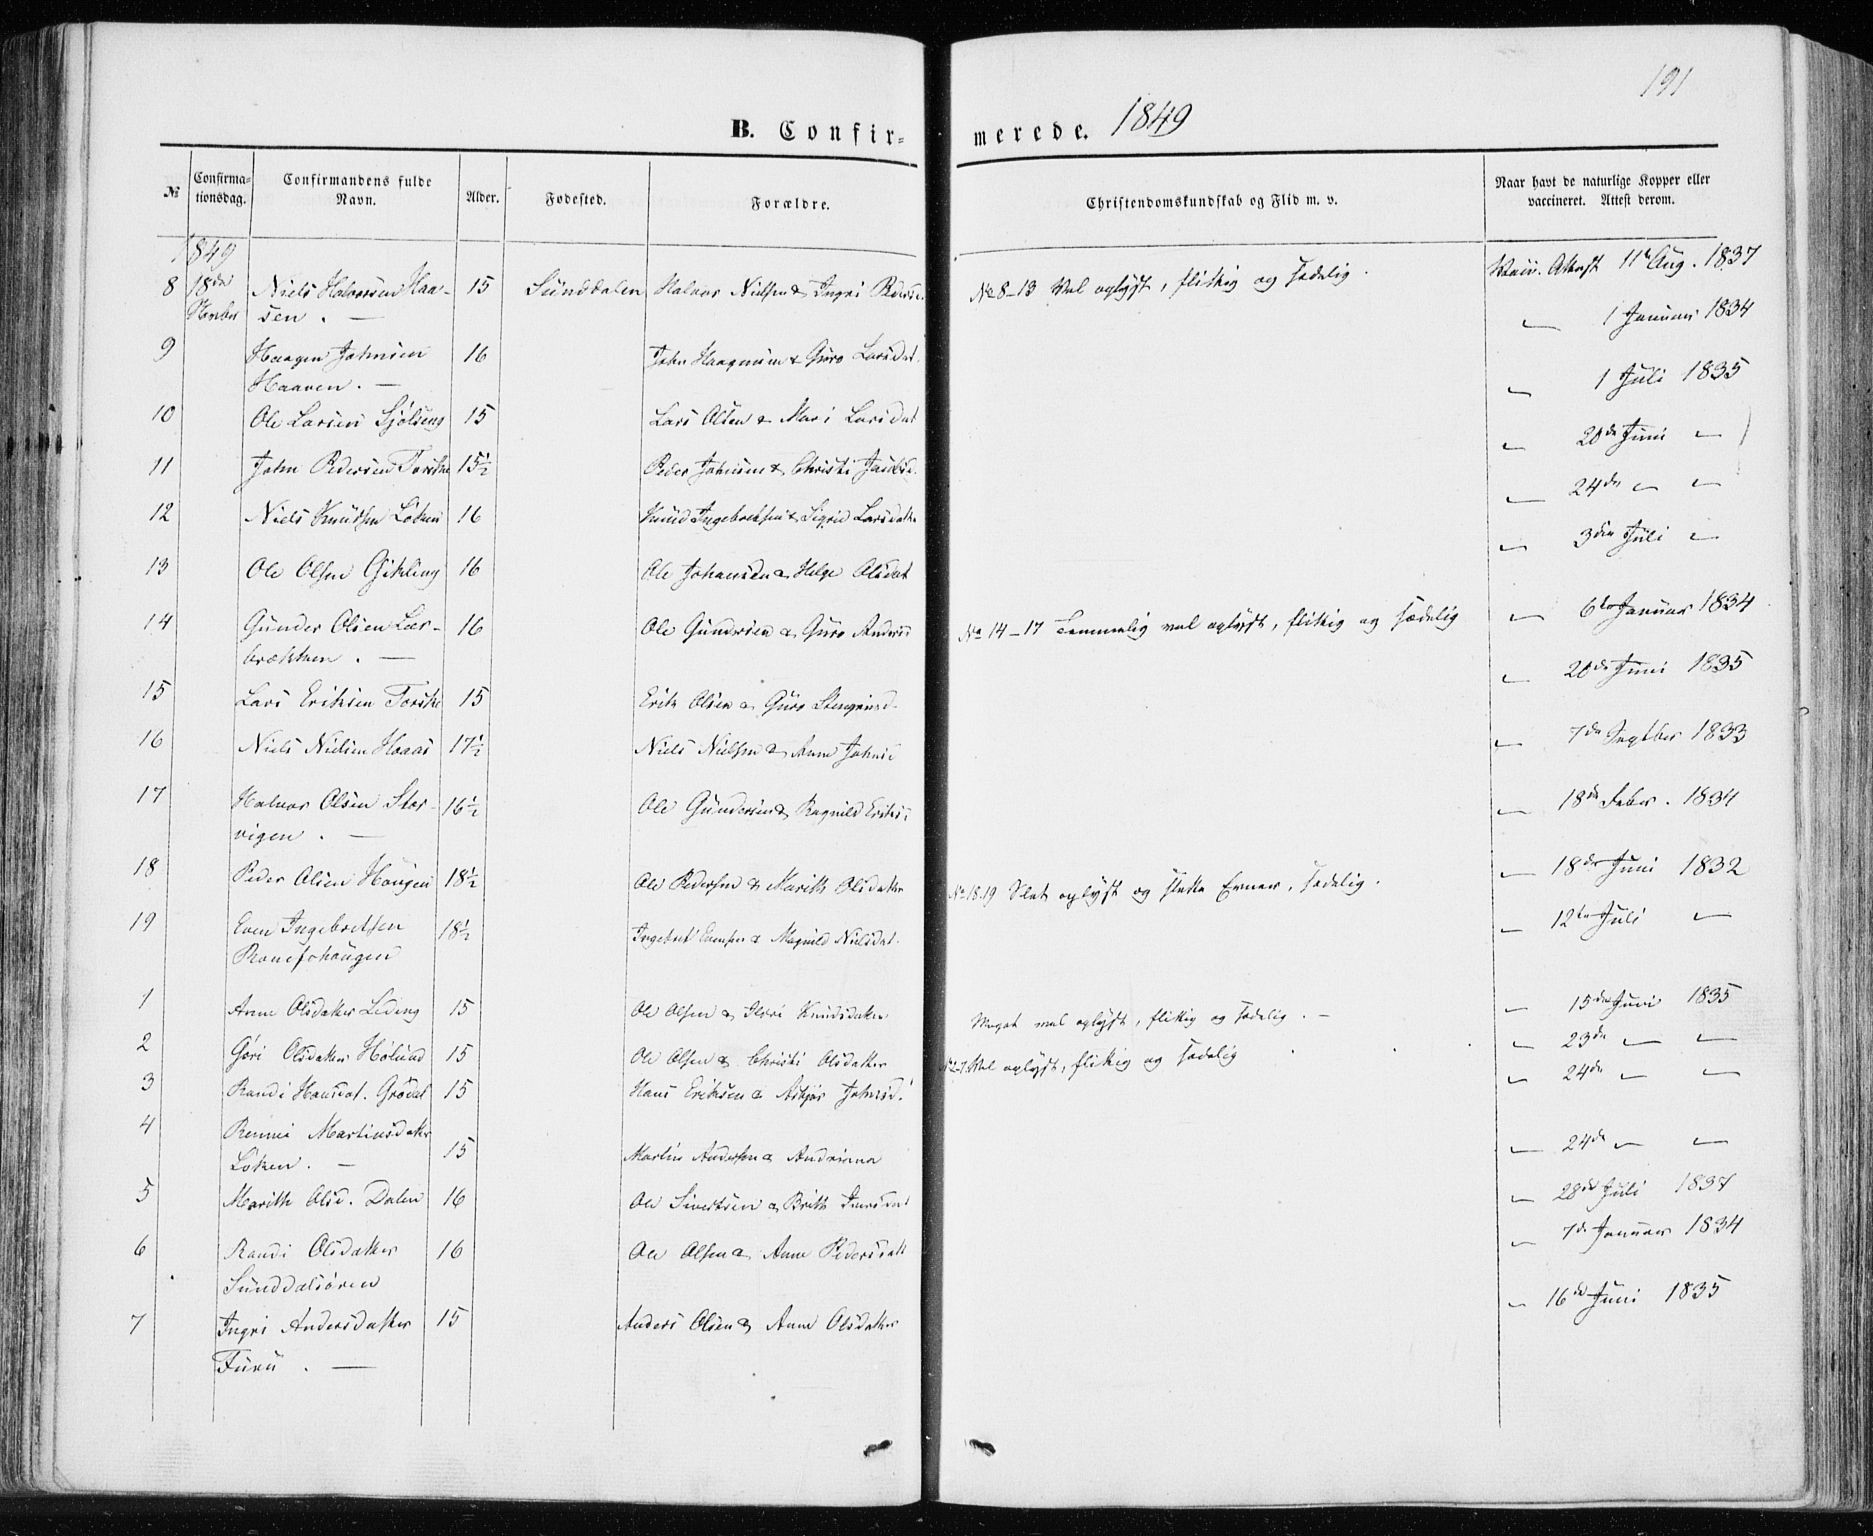 191
B. Confir-
merede. 1849
№
Confirma-
tionsdag.
Confirmandens fulde
Navn.
Alder.
Fødested.
Forældre.
Christendomskundskab og Flid m. v.
Naar havt de naturlige Kopper eller
vaccineret. Attest derom.
1849
8 18de Niels Halvorsen Haa- 15 Sunddalen Halvor Nielsen & Ingri Peders No 8-13 Vel oplyst, flittig og sædelig. Vacc. Attest 11te Aug. 1837
sen. —
9 Haagen Johnsen 16 John Haagensen & Guro Larsdat. " 1 Januar 1834
Haaven. —
10 Ole Larsen Sjølseng 15 Lars Olsen & Mari Larsdat " 1 Juli 1835
11 John Pedersen Torske 15½ Peder Johnsen & Christi " 20de Juni "
12 Niels Knudsen Løken 16 Knud Ingebrektsen & Sigrid Larsdatter " 24de " "
13 Ole Olsen Gikling 16 Ole Johansen & Helge Olsdat " 3die Juli "
14 Gunder Olsen Lær- 16 Ole Gundersen & Guro Anders No 14-17 Temmelig vel oplyst, flittig og sædelig " 6te Januar 1834
brækken. —
15 Lars Eriksen Torske 15 Erik Olsen & Guro Stengrimsd. " 20de Juni 1835
16 Niels Nielsen Haaas 17½ Niels Nielsen & Anne Johns " 7de Septber 1833
17 Halvor Olsen Stor- 16½ Ole Gundersen & Ragnild Eriks " 18de Feber. 1834
vigen. —
18 Peder Olsen Hougen 18½ Ole Pedersen & Marith Olsdatter No 18.19 Slet oplyst og slette Evner, sædelig. " 18de Juni 1832
19 Even Ingebretsen 18½ Ingebret Evensen & Magnild Nielsdat. " 12te Juli "
1 Anne Olsdatter Ledeng 15 Ole Olsen & Knudsdatter Meget vel oplyst, flittig og sædelig. — " 15de Juni 1835
2 Gøri Olsdatter Holund 15 Ole Olsen & Christi Olsdatter No 2-7 Vel oplyst, flittig og sædelig " 23de " "
3 Randi Hansdat. Grødal 15 Hans Eriksen & Asbjør Johnsd. " 24de " "
4 Martinsdatter
Løken. — 15 Martin Andersen & Andrianna " 24de " "
5 Marith Olsd. Dalen 16 Ole Sivertsen & Brith Iversdat " 28de Juli 1837
6 Randi Olsdatter 16 Ole Olsen & Anne Pedersdatt " 7de Januar 1834
Sunddalsøren
7 Ingri Andersdatter 15 Anders Olsen & Anne Olsdatter " 16de Juni 1835
Furu. —